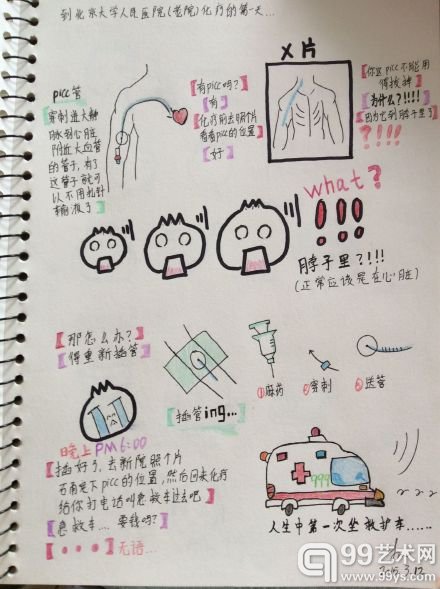 到北京大学人民医院(老院)化疗的第一天...
picc管
穿刺进大静
脉到心脏
附近大血管
的管子,有了
这管子就可
以不用扎针
输液了
【有picc吗?】
【有】
【化疗前去照个片
看看picc的位置】
【好】
X片
【你这picc不能用
得拔掉】
【为什么?!!!!】
【因为它到脖子里了】
【?!!!!】
what?
!!!
脖子里?!!!
(正常应该是在心脏)
【那怎么办?】
【得重新插管】
【插管ing...】
①麻药
②穿刺
③送管
晚上PM 6:00
【插好了,去新院照个片
确定下picc的位置,然后回来化疗
给你打电话叫急救车过去吧】
【急救车... 要钱吗?】
【•••】无语...
999
人生中第一次坐救护车......
2015.3.12
99艺术网
www.99ys.com